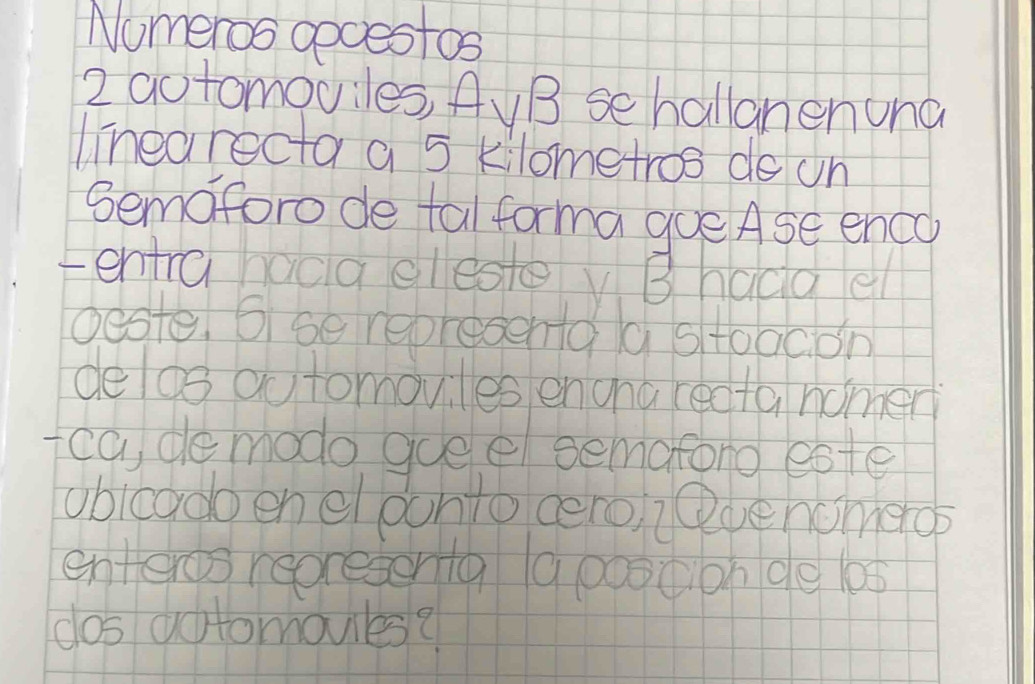 Numeros opuestos
2 automoviles, A y B se hallan en una
línea recta a 5 kilómetros de un
Semáforo de tal forma que A se encu
-entra hacia el este y B hacia el
oeste. Si se representa la situación
de los automoviles en una recta númeri
-ca, de modo que el semaforo este
ubicado en el punto cero, ¿Que números
enteros representa la posición de los
dos automoviles?